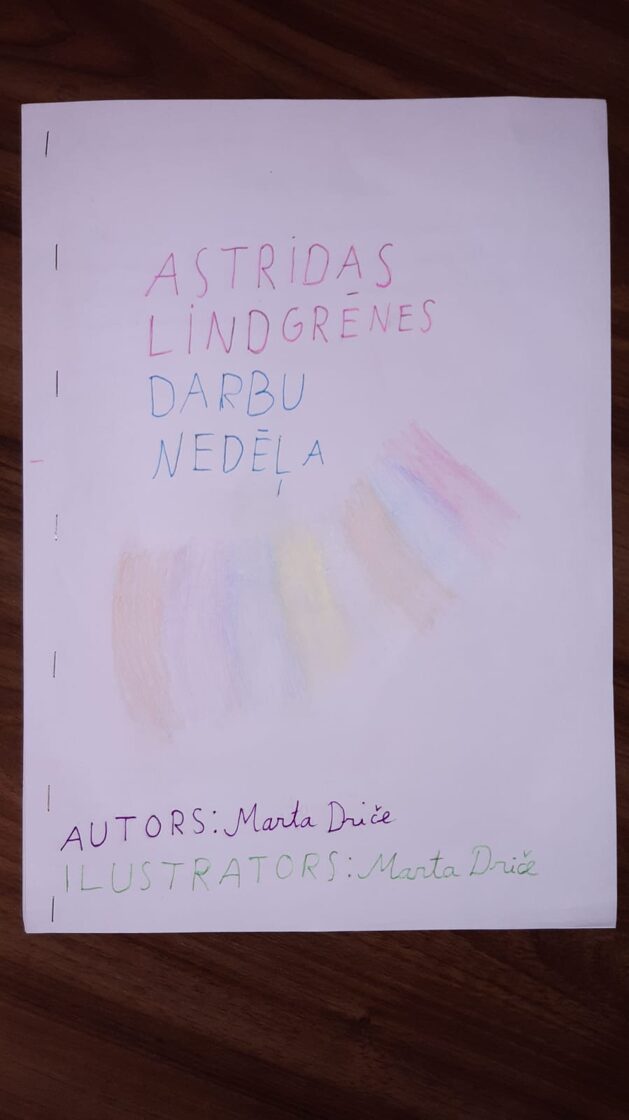 ASTRIDAS
LINDGRĒNES
DARBU
NEDĒĻA
AUTORS: Marta Driče
ILUSTRATORS: Marta Driče